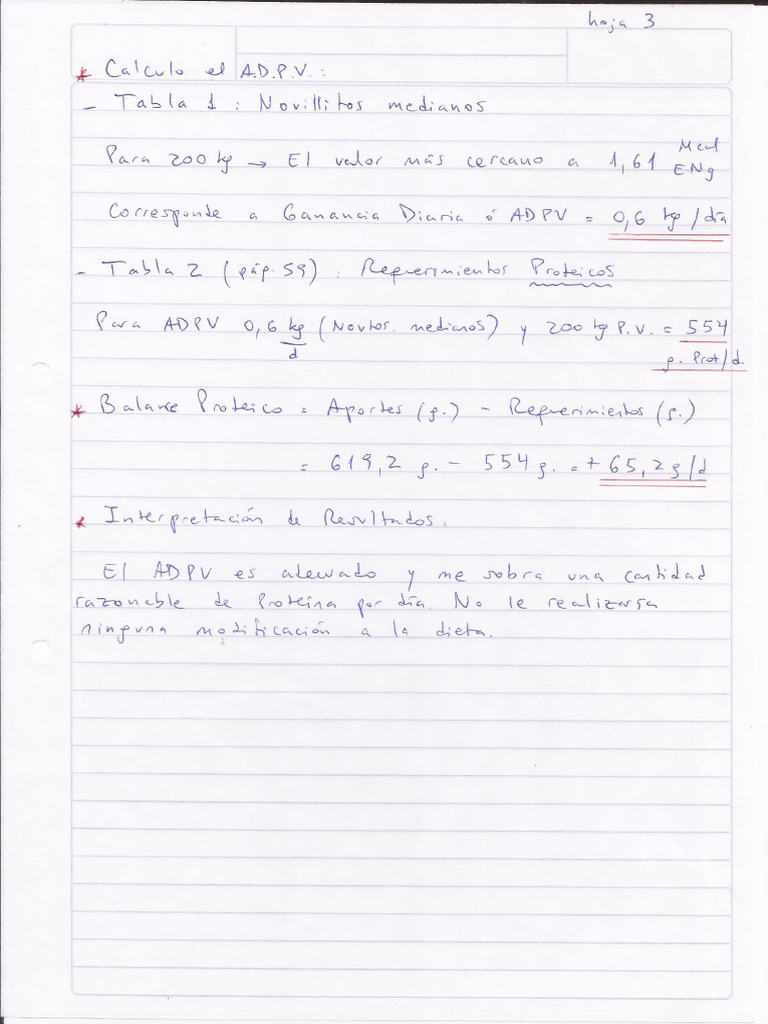 hoja 3
* Calculo el A.D.P.V.:
- Tabla 1 : Novillitos medianos
Para 200 kg → El valor más cercano a 1,61 Mcal ENg
Corresponde a Ganancia Diaria ó ADPV = 0,6 kg/día
- Tabla 2 (pág. 59) : Requerimientos Proteicos
Para ADPV 0,6 kg/d (Novtos. medianos) y 200 kg P.V. = 554
g. Prot/d.
* Balance Proteico = Aportes (g.) - Requerimientos (g.)
= 619,2 g. - 554 g. = + 65,2 g/d
* Interpretación de Resultados.
El ADPV es adecuado y me sobra una cantidad
razonable de Proteína por día. No le realizaría
ninguna modificación a la dieta.